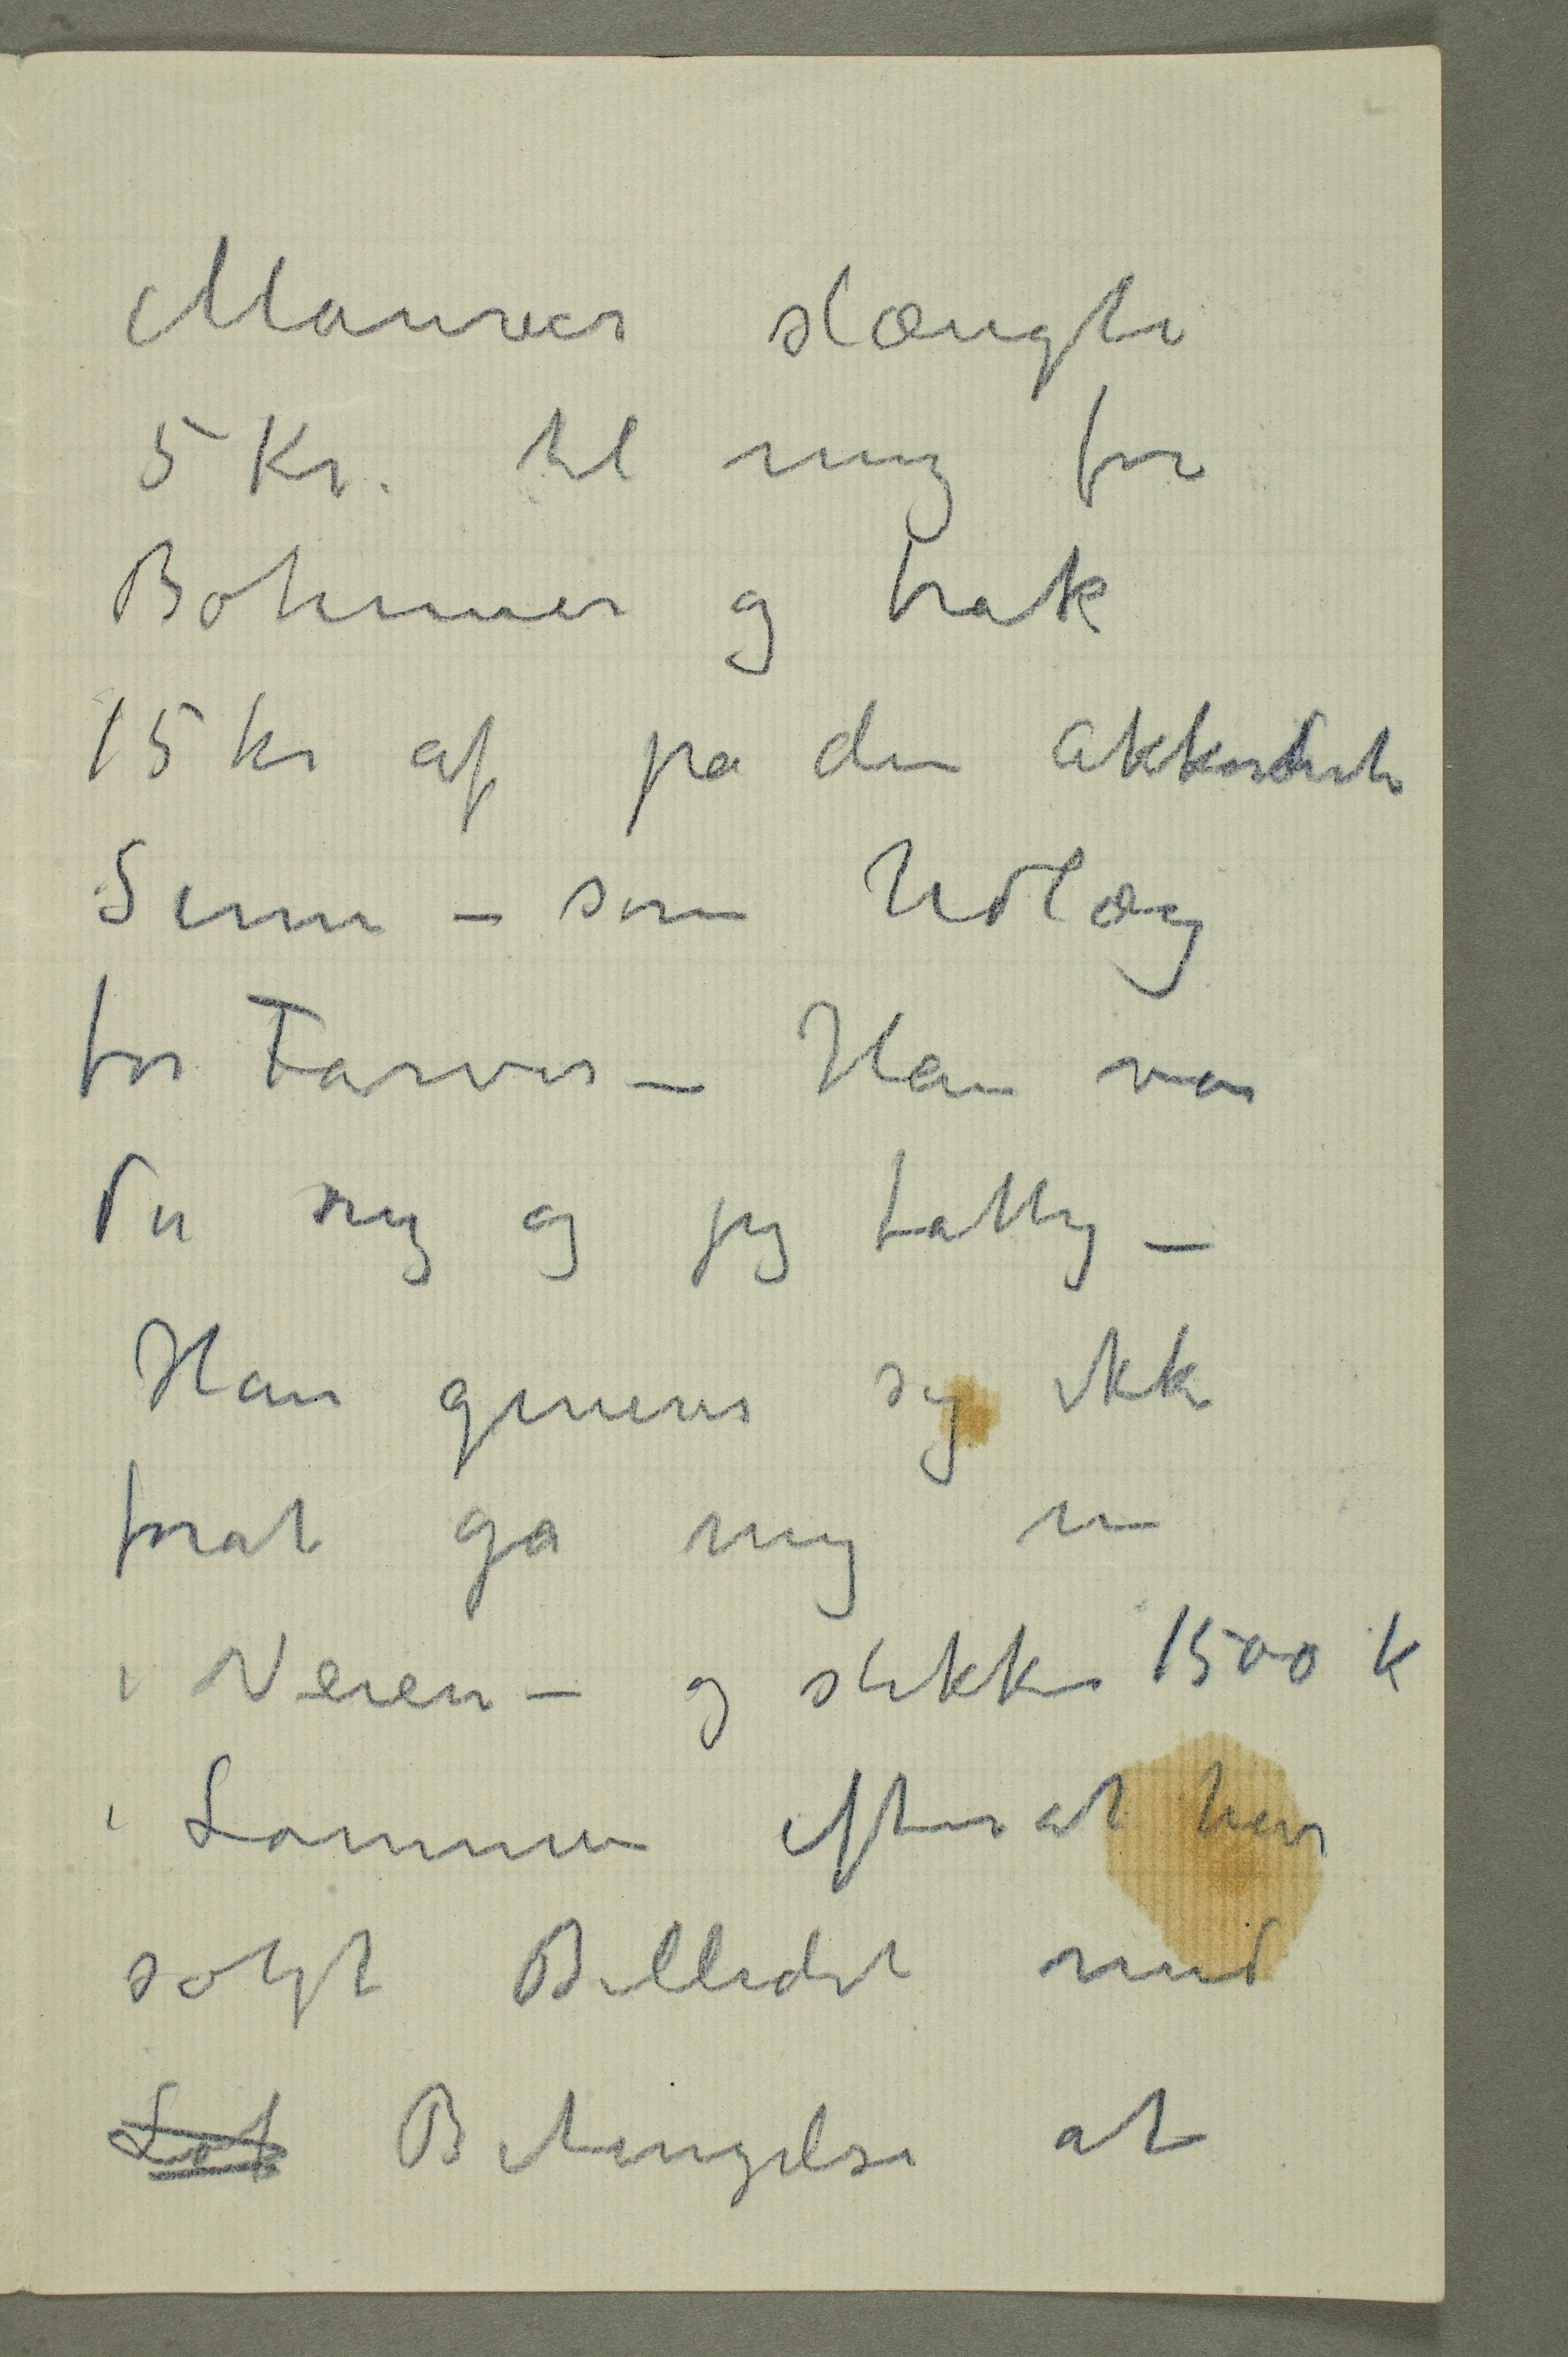 Maurer slængte
5 Kr. til mig for
Bohemer og trak
15 kr af pa den akkorderte
Sum – som Udlæg
for Farver – Han var
du rig og jeg fattig –
Han generer sig ikke
forat ga mig en
i Veien – og stikke 1500 K
i Lommen efterat have
solgt Billedet med
Betingelse at